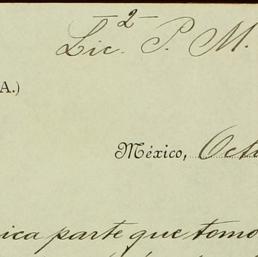 -2-
Lic. P. M.
A.)
México, Octu
ica parte que tomo